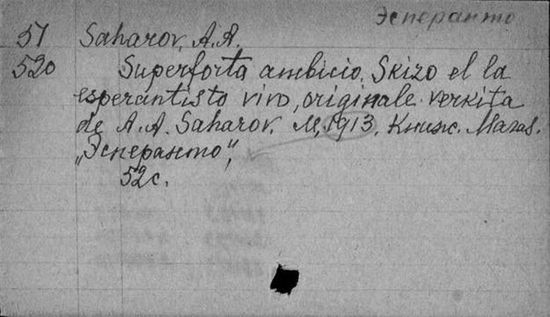 Эсперанто
57 Saharov, A.A.
520 Superforta ambicio. Skizo el la
esperantisto vivo, originale verkita
de A.A. Saharov. M, 1913, Книж. Магаз.
„Эсперанто",
52 с.